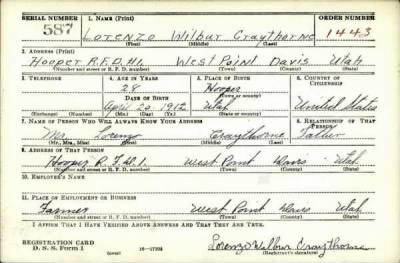 SERIAL NUMBER 1. NAME (Print) ORDER NUMBER
587 Lorenzo Wilbur Craythorne 1443
(First) (Middle) (Last)
2. ADDRESS (Print)
Hooper R.F.D. #1. West Point Davis Utah
(Number and street or R. F. D. number) (Town) (County) (State)
3. TELEPHONE 4. AGE IN YEARS 5. PLACE OF BIRTH 6. COUNTRY OF CITIZENSHIP
28 Hooper
DATE OF BIRTH (Town or county)
April 29 1912 Utah United States
(Exchange) (Number) (Mo.) (Day) (Yr.) (State or country)
7. NAME OF PERSON WHO WILL ALWAYS KNOW YOUR ADDRESS 8. RELATIONSHIP OF THAT PERSON
Mr. Lorenzo Craythorne Father
(Mr., Mrs., Miss) (First) (Middle) (Last)
9. ADDRESS OF THAT PERSON
Hooper R.F.D. 1. West Point Davis Utah
(Number and street or R. F. D. number) (Town) (County) (State)
10. EMPLOYER'S NAME
11. PLACE OF EMPLOYMENT OR BUSINESS
Farmer West Point Davis Utah
(Number and street or R. F. D. number) (Town) (County) (State)
I AFFIRM THAT I HAVE VERIFIED ABOVE ANSWERS AND THAT THEY ARE TRUE.
REGISTRATION CARD
D. S. S. Form 1 (over) Lorenzo Wilbur Craythorne
(Registrant's signature)